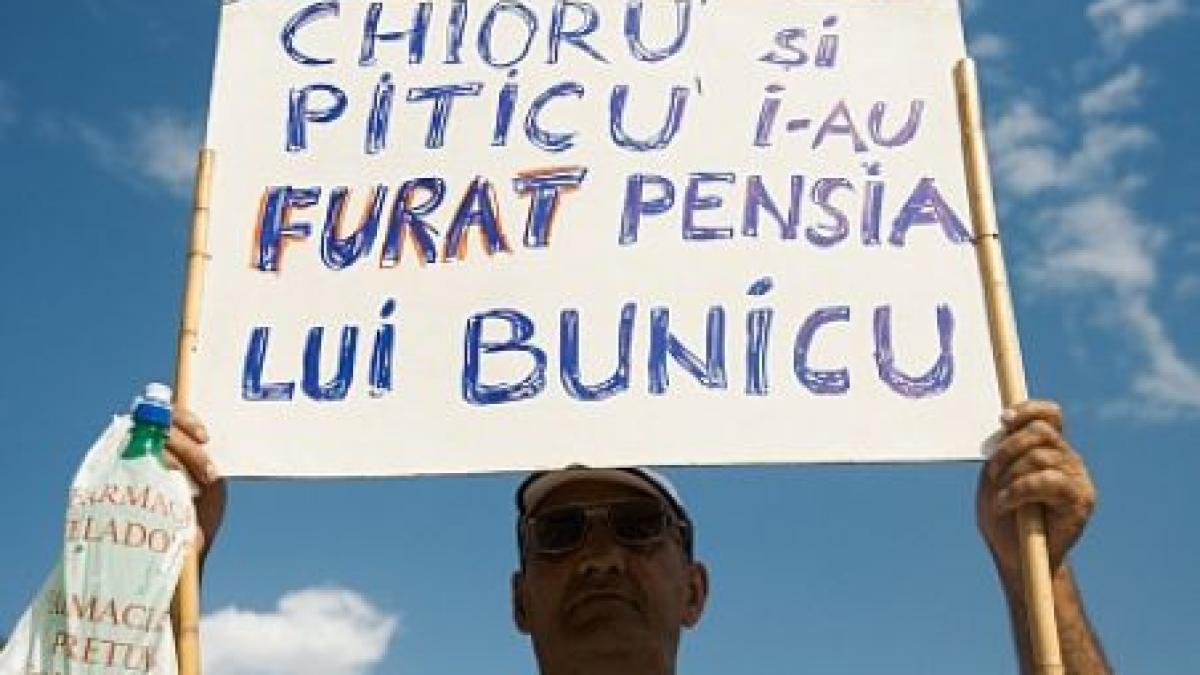 CHIORU' și
PITICU' i-AU
FURAT PENSIA
LUI BUNICU
FARMAC
ELADO
MACI
PREȚUR